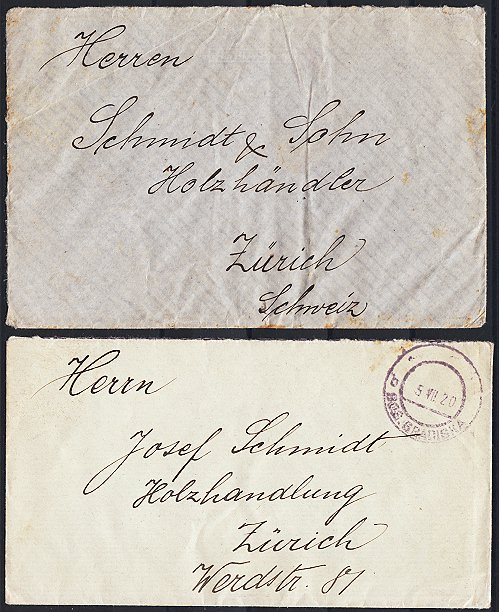 Herren
Schmidt & Sohn
Holzhändler
Zürich
Schweiz
Herrn
5 VII 20
BOS. GRADISKA
Josef Schmidt
Holzhandlung
Zürich
Werdstr. 81